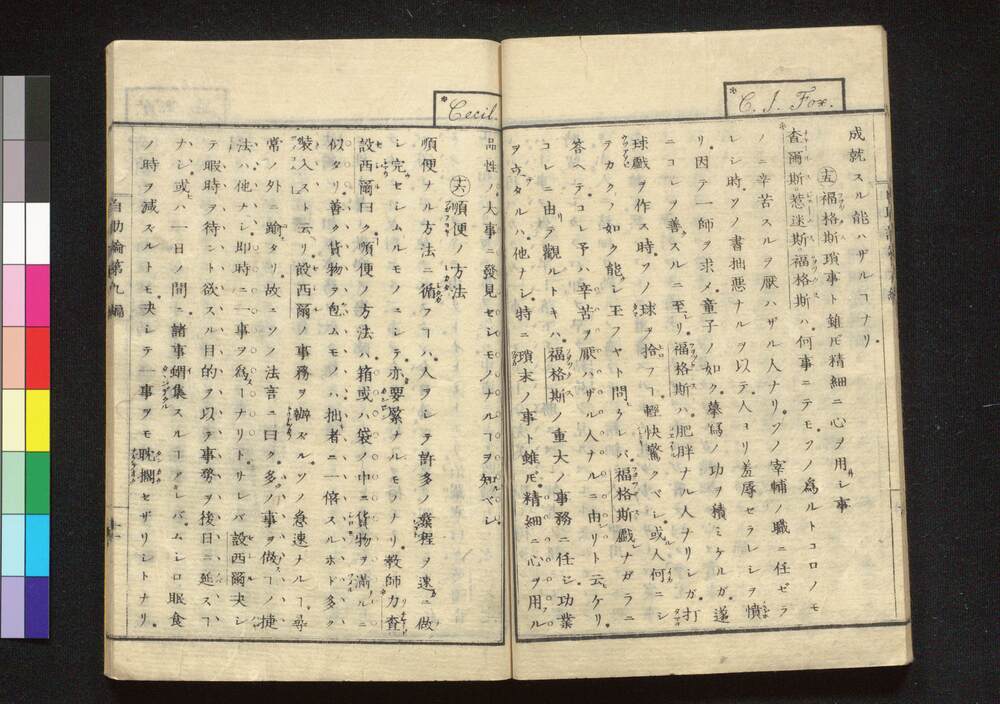 C. J. Fox.
成就スル能ハザルヿナリ。
十五 福格斯瑣事ト雖𪜈精細ニ心ヲ用ヰシ事
査爾斯惹迷斯福格斯ハ。何事ニテモソノ爲ルトコロノモ
ノニ辛苦スルヲ厭ハザル人ナリ。ソノ宰輔ノ職ニ任ゼラ
レシ時。ソノ書拙惡ナルヲ以テ。人ヨリ羞辱セラレシヲ憤
リ。因テ一師ヲ求メ。童子ノ如ク。摹寫ノ功ヲ積ミケルガ。遂
ニコレヲ善スルニ至レリ。福格斯ハ。肥胖ナル人ナリシガ。打
球戲ヲ作ス時。ソノ球ヲ拾フヿ。輕快驚クベシ。或人何ニシ
テカクノ如ク能シ玉フヤト問ケレバ。福格斯戲ナガラニ
答ヘテ。コレ予ハ辛苦ヲ厭ハザル人ナルニ由リト云ケリ。
コレニ由リテ觀ルトキハ。福格斯ノ重大ノ事務ニ任ジ。功業
ヲ立タルハ。他ナシ。特ニ瑣末ノ事ト雖𪜈。精細ニ心ヲ用ル
Cecil.
品性ノ。大事ニ發見セシモノナルヿヲ知ベシ。
十六 順便ノ方法
順便ナル方法ニ循フヿハ。人ヲシテ許多ノ業程ヲ速ニ做
シ完セシムルモノニシテ。亦要緊ナルモノナリ。教師力査
設西爾曰ク。順便ノ方法ハ。箱或ハ袋ノ中ニ貨物ヲ滿ルニ
似タリ。善ク貨物ヲ包ムモノハ。拙者ニ一倍スルホド多ク
裝入スト云リ。設西爾ノ事務ヲ辦ズルソノ急速ナルヿ。尋
常ノ外ニ踰タリ。故ニソノ法言ニ曰ク。多ノ事ヲ做スヿノ捷
法ハ。他ナシ。即時ニ一事ヲ爲スヿナリト。サレバ設西爾夬シ
テ暇時ヲ待ント欲スル目的ヲ以テ。事務ヲ後日ニ延スヿ
ナシ。或ハ一日ノ間ニ。諸事蝟集スルヿアレバ。ムシロ眠食
ノ時ヲ減ズルトモ。夬シテ一事ヲモ耽擱セザリシトナリ。
自助論第九編